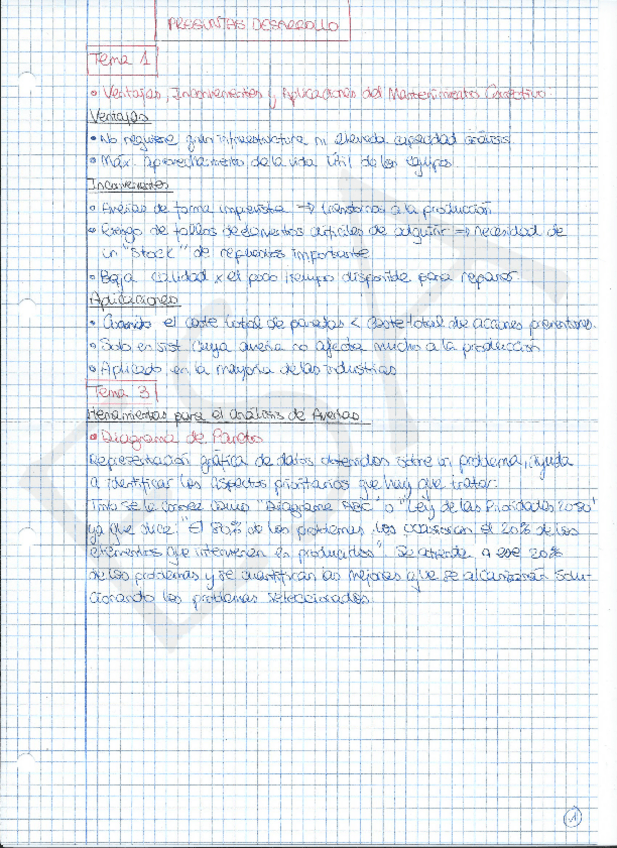 PREGUNTAS DESARROLLO
Tema 1
• Ventajas, Inconvenientes y Aplicaciones del Mantenimiento Correctivo.
Ventajas
• No requiere gran infraestructura ni elevada capacidad análisis.
• Máx. aprovechamiento de la vida útil de los equipos.
Inconvenientes
• Averías de forma imprevista ⇒ trastornos a la producción.
• Riesgo de fallos de elementos difíciles de adquirir ⇒ necesidad de
un "Stock" de repuestos importante
• Baja calidad x el poco tiempo disponible para reparar.
Aplicaciones
• Cuando el coste total de paradas < Coste total de acciones preventivas.
• Solo en sist. cuya avería no afecta mucho a la producción
• Aplicado en la mayoría de las industrias
Tema 3
Herramientas para el análisis de Averías
• Diagrama de Pareto
Representación gráfica de datos obtenidos sobre un problema, ayuda
a identificar los aspectos prioritarios que hay que tratar.
Tmb se le conoce como "Diagrama ABC" o "Ley de las Prioridades 20-80"
ya que dice: "El 80% de los problemas los ocasionan el 20% de los
elementos que intervienen en producirlos" Se atiende a ese 20%
de los problemas y se cuantifican las mejoras que se alcanzarán solu-
cionando los problemas seleccionados.
1